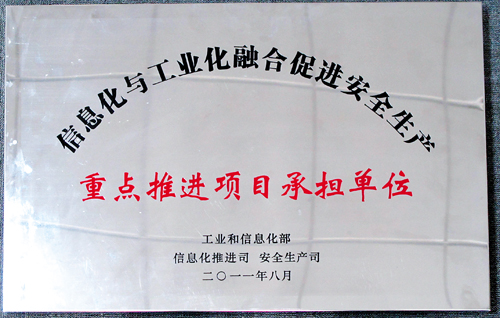 信息化与工业化融合促进安全生产
重点推进项目承担单位
工业和信息化部
信息化推进司 安全生产司
二〇一一年八月